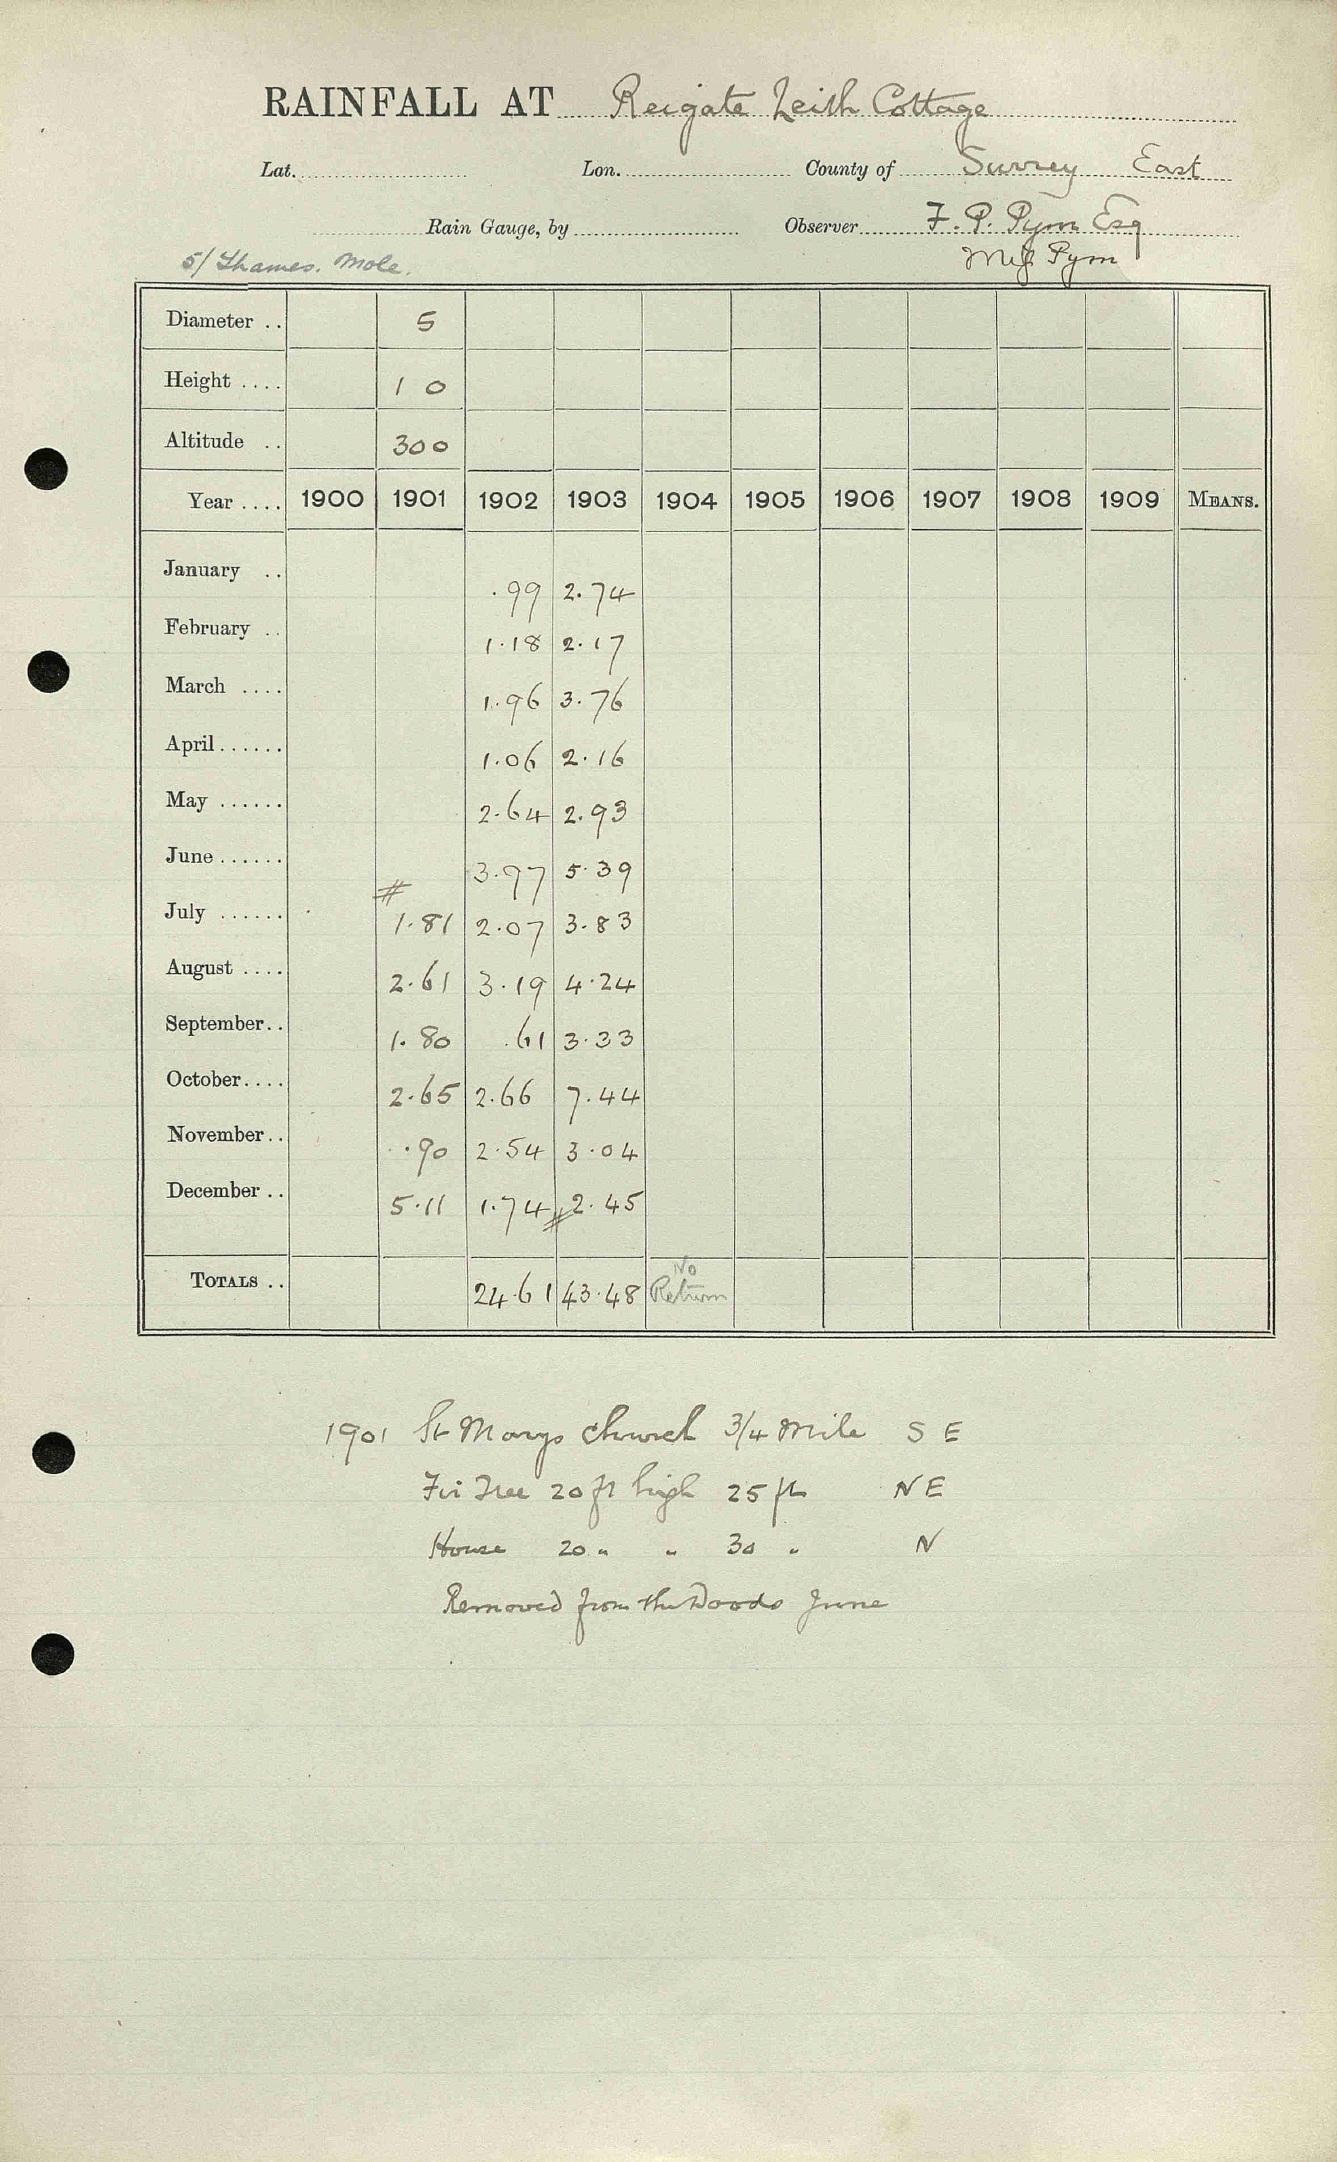 RAINFALL AT Reigate Leith Cottage
Lat. Lon. County of Surrey East
Rain Gauge, by Observer F. P. Pym Esq
5/ Thames. Mole. Miss Pym
Diameter .. 5
Height .... 1 0
Altitude .. 300
Year .... 1900 1901 1902 1903 1904 1905 1906 1907 1908 1909 MEANS.
January .. .99 2.74
February .. 1.18 2.17
March .... 1.96 3.76
April...... 1.06 2.16
May ...... 2.64 2.93
June...... 3.97 5.39
July ...... # 1.81 2.07 3.83
August .... 2.61 3.19 4.24
September.. 1.80 .61 3.33
October.... 2.65 2.66 7.44
November.. .90 2.54 3.04
December .. 5.11 1.74 # 2.45
TOTALS .. 24.61 43.48 No Return
1901 St Marys Church 3/4 Mile S E
Fir Tree 20 ft high 25 ft N E
House 20 " " 30 " N
Removed from the Woods June